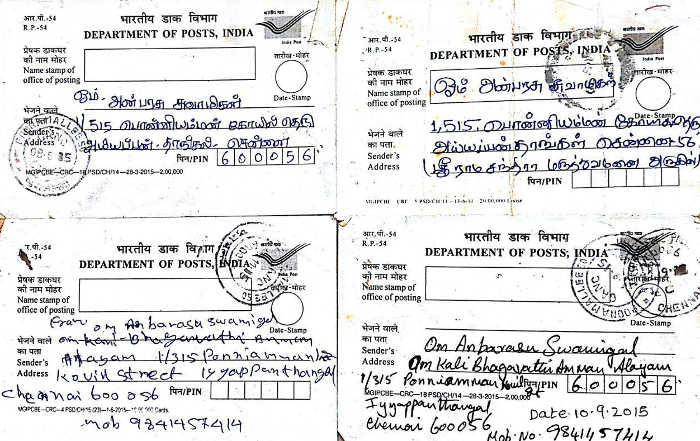 आर.पी.-54
R.P.-54
भारतीय डाक विभाग
DEPARTMENT OF POSTS, INDIA
भारतीय डाक
India Post
प्रेषक डाकघर
की नाम मोहर
Name stamp of
office of posting
तारीख-मोहर
Date-Stamp
भेजने वाले
का पता
Sender's
Address
ஓம். அன்பரசு சுவாமிகள்
1/515 பொன்னியம்மன் கோயில் தெரு
அய்யப்பன் தாங்கல் சென்னை
पिन/PIN 600056
MGIPCBE—CRC—18 PSD/CH/14—28-3-2015—2,00,000
आर.पी.-54
R.P.-54
भारतीय डाक विभाग
DEPARTMENT OF POSTS, INDIA
India Post
प्रेषक डाकघर
की नाम मोहर
Name stamp of
office of posting
तारीख-मोहर
Date-Stamp
ஓம் அன்பரசு சுவாமிகள்
भेजने वाले
का पता
Sender's
Address
1,515. பொன்னியம்மன்
அய்யப்பன்தாங்கல் சென்னை 56
ஸ்ரீ ராமசந்திரா மருத்துவமனை அருகில்
पिन/PIN
आर.पी.-54
R.P.-54
भारतीय डाक विभाग
DEPARTMENT OF POSTS, INDIA
India Post
प्रेषक डाकघर
की नाम मोहर
Name stamp of
office of posting
Date-Stamp
भेजने वाले
का पता
Sender's
Address
From Om Anbarasu Swamigal
Om Kali Bhagavathi Amman
Alayam 1/315 Ponniamman
Kovil Street Iyyappanthangal
Chennai 600 056
पिन/PIN
Mob 9841457414
आर.पी.-54
R.P.-54
भारतीय डाक विभाग
DEPARTMENT OF POSTS, INDIA
प्रेषक डाकघर
की नाम मोहर
Name stamp of
office of posting
Date-Stamp
भेजने वाले
का पता
Sender's
Address
Om Anbarasu Swamigal
Om Kali Bhagavathi Amman Alayam
1/315 Ponniamman Kovil St
पिन/PIN 600056
MGIPCBE—CRC—18 PSD/CH/14—28-3-2015—2,00,000
Iyyappanthangal
Chennai 600056
Date:10-9-2015
Mob: No: 9841457414